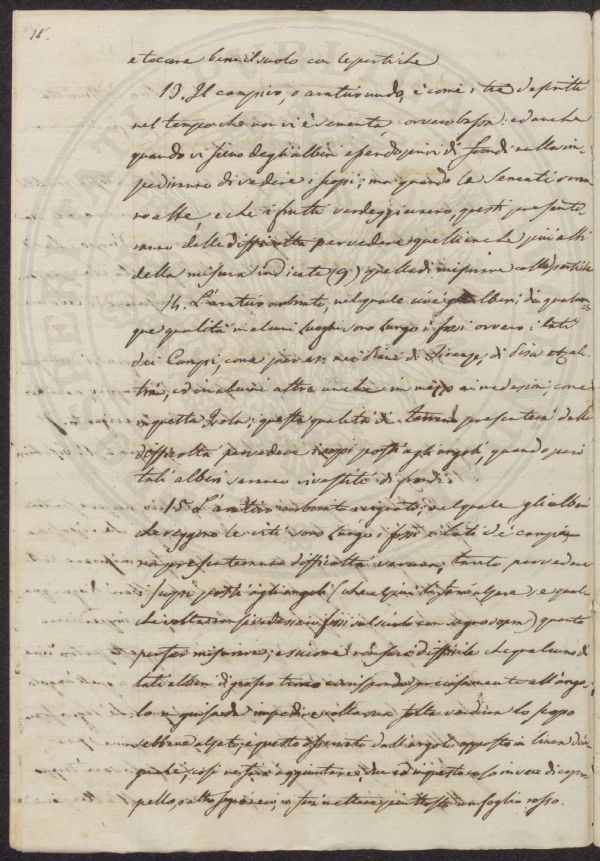 18.
e toccare bene il suolo con le pertiche
13. Il campivo, o arativo nudo, è come i tre definiti
nel tempo che non vi è sementa, ovvero bassa: ed anche
quando vi sieno degli alberi essendo privi di frondi nulla im-
pediranno di vedere i scopi; ma quando le sementi saran-
no alte, e che i frutti verdeggieranno, questi presente-
ranno delle difficoltà per vedere quelli anche più alti
della misura indicata (9) e quella di misurare colle pertiche
14. L'arativo arborato, nel quale cioè gli alberi, di qualun-
que qualità in alcuni luoghi sono lungo i fossi ovvero i lati
dei Campi, come per es: nei Piani di Firenze, di Pisa ed al-
tri; ed in alcuni altri anche in mezzo ai medesimi, come
in quest' Isola; questa qualità di terreno presenterà delle
difficoltà per vedere i scopi posti agli angoli, quando però
tali alberi saranno rivestiti di frondi.
15. L'arativo arborato vignato, nel quale gli alberi
che reggono le viti sono lungo i fossi o i lati de' campi
non presenteranno difficoltà veruna, tanto per vedere
i scopi posti agli angoli (che si farà alzare se qual-
che volta non si vedessero fissi sul suolo con segno sopra) quanto
per far misurare; e siccome non sarà difficile che qualcuno di
tali alberi di grosso tronco corrisponda precisamente all'ango-
lo in guisa da impedire colla sua folta verdura lo scopo
sebbene alzato, e questo osservato dall'angolo opposto in linea dia-
gonale, così ne farà aggiuntare due ed in questo caso invece di cap-
pello, o altro sopra esso, vi farà mettere piuttosto un foglio rosso.